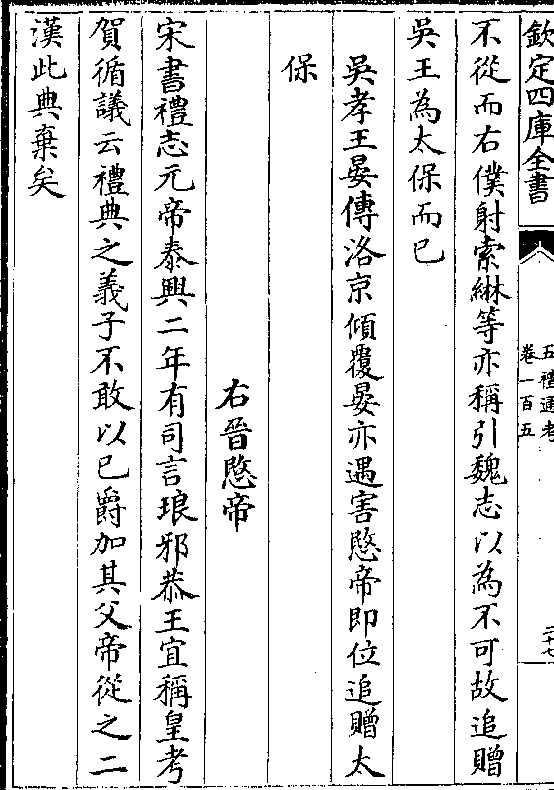 欽定四庫全書
五禮通考
卷一百五
二十七
不從而右僕射索綝等亦稱引魏志以為不可故追贈
吳王為太保而已
吳孝王晏傳洛京傾覆晏亦遇害愍帝即位追贈太
保
右晉愍帝
宋書禮志元帝泰興二年有司言琅邪恭王宜稱皇考
賀循議云禮典之義子不敢以已爵加其父帝從之二
漢此典棄矣